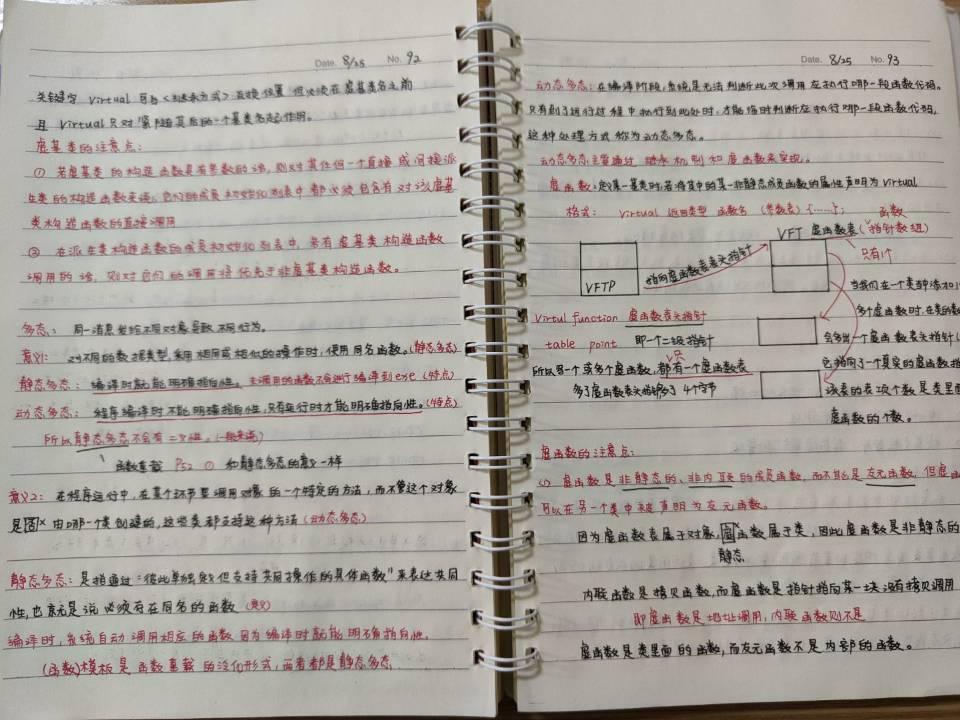 Date. 8/25 No. 92
关键字 virtual 可与<继承方式>互换位置 但必须在虚基类名之前
且 Virtual 只对紧随其后的一个基类名起作用。
虚基类的注意点:
① 若虚基类的构造函数是有参数的话,则对其任何一个直接或间接派
生类的构造函数来说,它们的成员初始化列表中都必须包含有对该虚基
类构造函数的直接调用
② 在派生类构造函数的成员初始化列表中,若有虚基类构造函数
调用的话,则对它们的调用将优先于非虚基类构造函数。
多态: 同一消息发给不同对象导致不同行为。
意义1: 对不同的数据类型,采用相同或相似的操作时,使用同名函数。(静态多态)
静态多态: 编译时就能明确指向性。主调用的函数不会进行编译到exe (特点)
动态多态: 程序编译时不能明确指向性,只有运行时才能明确指向性。(特点)
所以静态多态不会有二义性。(一般来说)
函数重载 P52 ① 和静态多态的意义一样
意义2: 在程序运行中,在某个环节要调用对象的一个特定的方法,而不管这个对象
是 由哪一个类创建的,这些类都支持这种方法 (动态多态)
静态多态: 是指通过"彼此单独定义但支持共同操作的具体函数"来表达共同
性,也就是说必须存在同名的函数 (意义)
编译时,系统自动调用相应的函数 因为编译时就能明确指向性。
(函数)模板是函数重载的泛化形式,两者都是静态多态
Date. 8/25 No. 93
动态多态: 在编译阶段,系统是无法判断此次调用应执行哪一段函数代码。
只有到了运行过程中执行到此处时,才能临时判断应执行哪一段函数代码,
这种处理方式称为动态多态。
动态多态主要通过继承机制和虚函数来实现。
虚函数:定义某一基类时,若将其中的某一非静态成员函数的属性声明为virtual
格式: virtual 返回类型 函数名 (参数表) {……}; 函数
VFT 虚函数表(指针数组)
只有1个
指向虚函数表表头指针
VFTP
当我们在一个类中添加1
多个虚函数时,在类的
会多出一个虚函数表头指针
它指向了一个真实的虚函数指
该表的表项个数是类里面
虚函数的个数。
Virtul function 虚函数表头指针
table point 即一个二级指针
所以另一个或多个虚函数,都有一个虚函数表
只
多了虚函数表头指针多了4个字节
虚函数的注意点:
(1) 虚函数是非静态的、非内联的成员函数,而不能是友元函数,但虚函
可以在另一个类中被声明为友元函数。
因为虚函数表属于对象, 函数属于类,因此虚函数是非静态的
静态
内联函数是拷贝函数,而虚函数是指针指向某一块 没有拷贝调用
即虚函数是地址调用,内联函数则不是
虚函数是类里面的函数,而友元函数不是内部的函数。